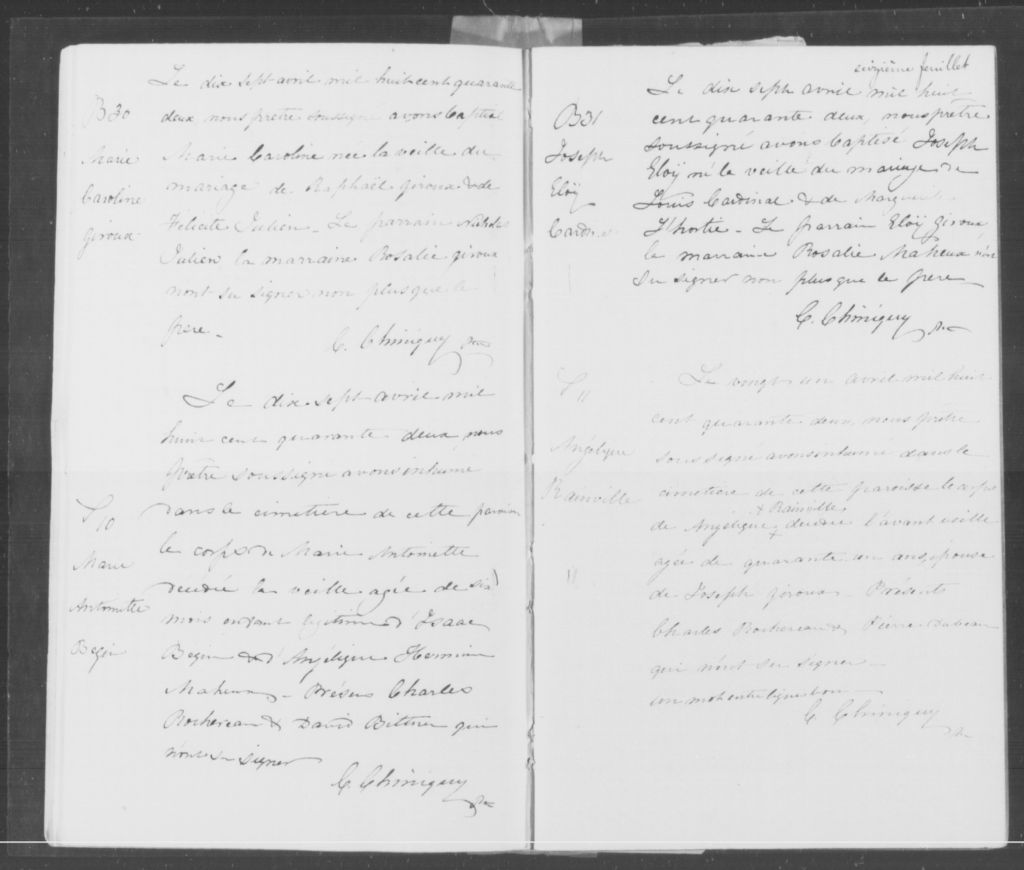 Le dix sept avril mil huit cent quarante
B30
deux nous prêtre soussigné avons baptisé
Marie
Caroline
Giroux
Marie Caroline née la veille du
mariage de Raphaël Giroux & de
Félicité Julien. Le parrain Nicholas
Julien la marraine Rosalie Giroux
n'ont su signer non plus que le
père.
C. Chiniquy Ptre
Le dix sept avril mil
huit cent quarante deux nous
Prêtre soussigné avons inhumé
S 10
Marie
Antoinette
Begin
dans le cimetière de cette paroisse
le corps de Marie Antoinette
décédée la veille agée de six
mois enfant légitime d'Isaac
Begin & d'Angélique
Maheux. Présens Charles
Rochereau & David qui
n'ont su signer
C. Chiniquy Ptre
seizième feuillet
Le dix sept avril mil huit
B31
Joseph
Eloÿ
Cardinal
cent quarante deux, nous prêtre
soussigné avons baptisé Joseph
Eloÿ né le veille du mariage de
Louis Cardinal & de Marguerite
L'hortie. Le parrain Eloÿ Giroux,
la marraine Rosalie Maheux n'ont
su signer non plus que le père
C. Chiniquy Ptre
S 11
Angélique
Rainville
Le vingt un avril mil huit
cent quarante deux, nous prêtre
soussigné avons inhumé dans le
cimetière de cette paroisse le corps
+ Rainville
de Angélique + décédée l'avant veille
agée de quarante un ans, épouse
de Joseph Giroux. Présents
Charles Rochereau & Pierre
qui n'ont su signer
un mot entreligne bon
C. Chiniquy
Ptre